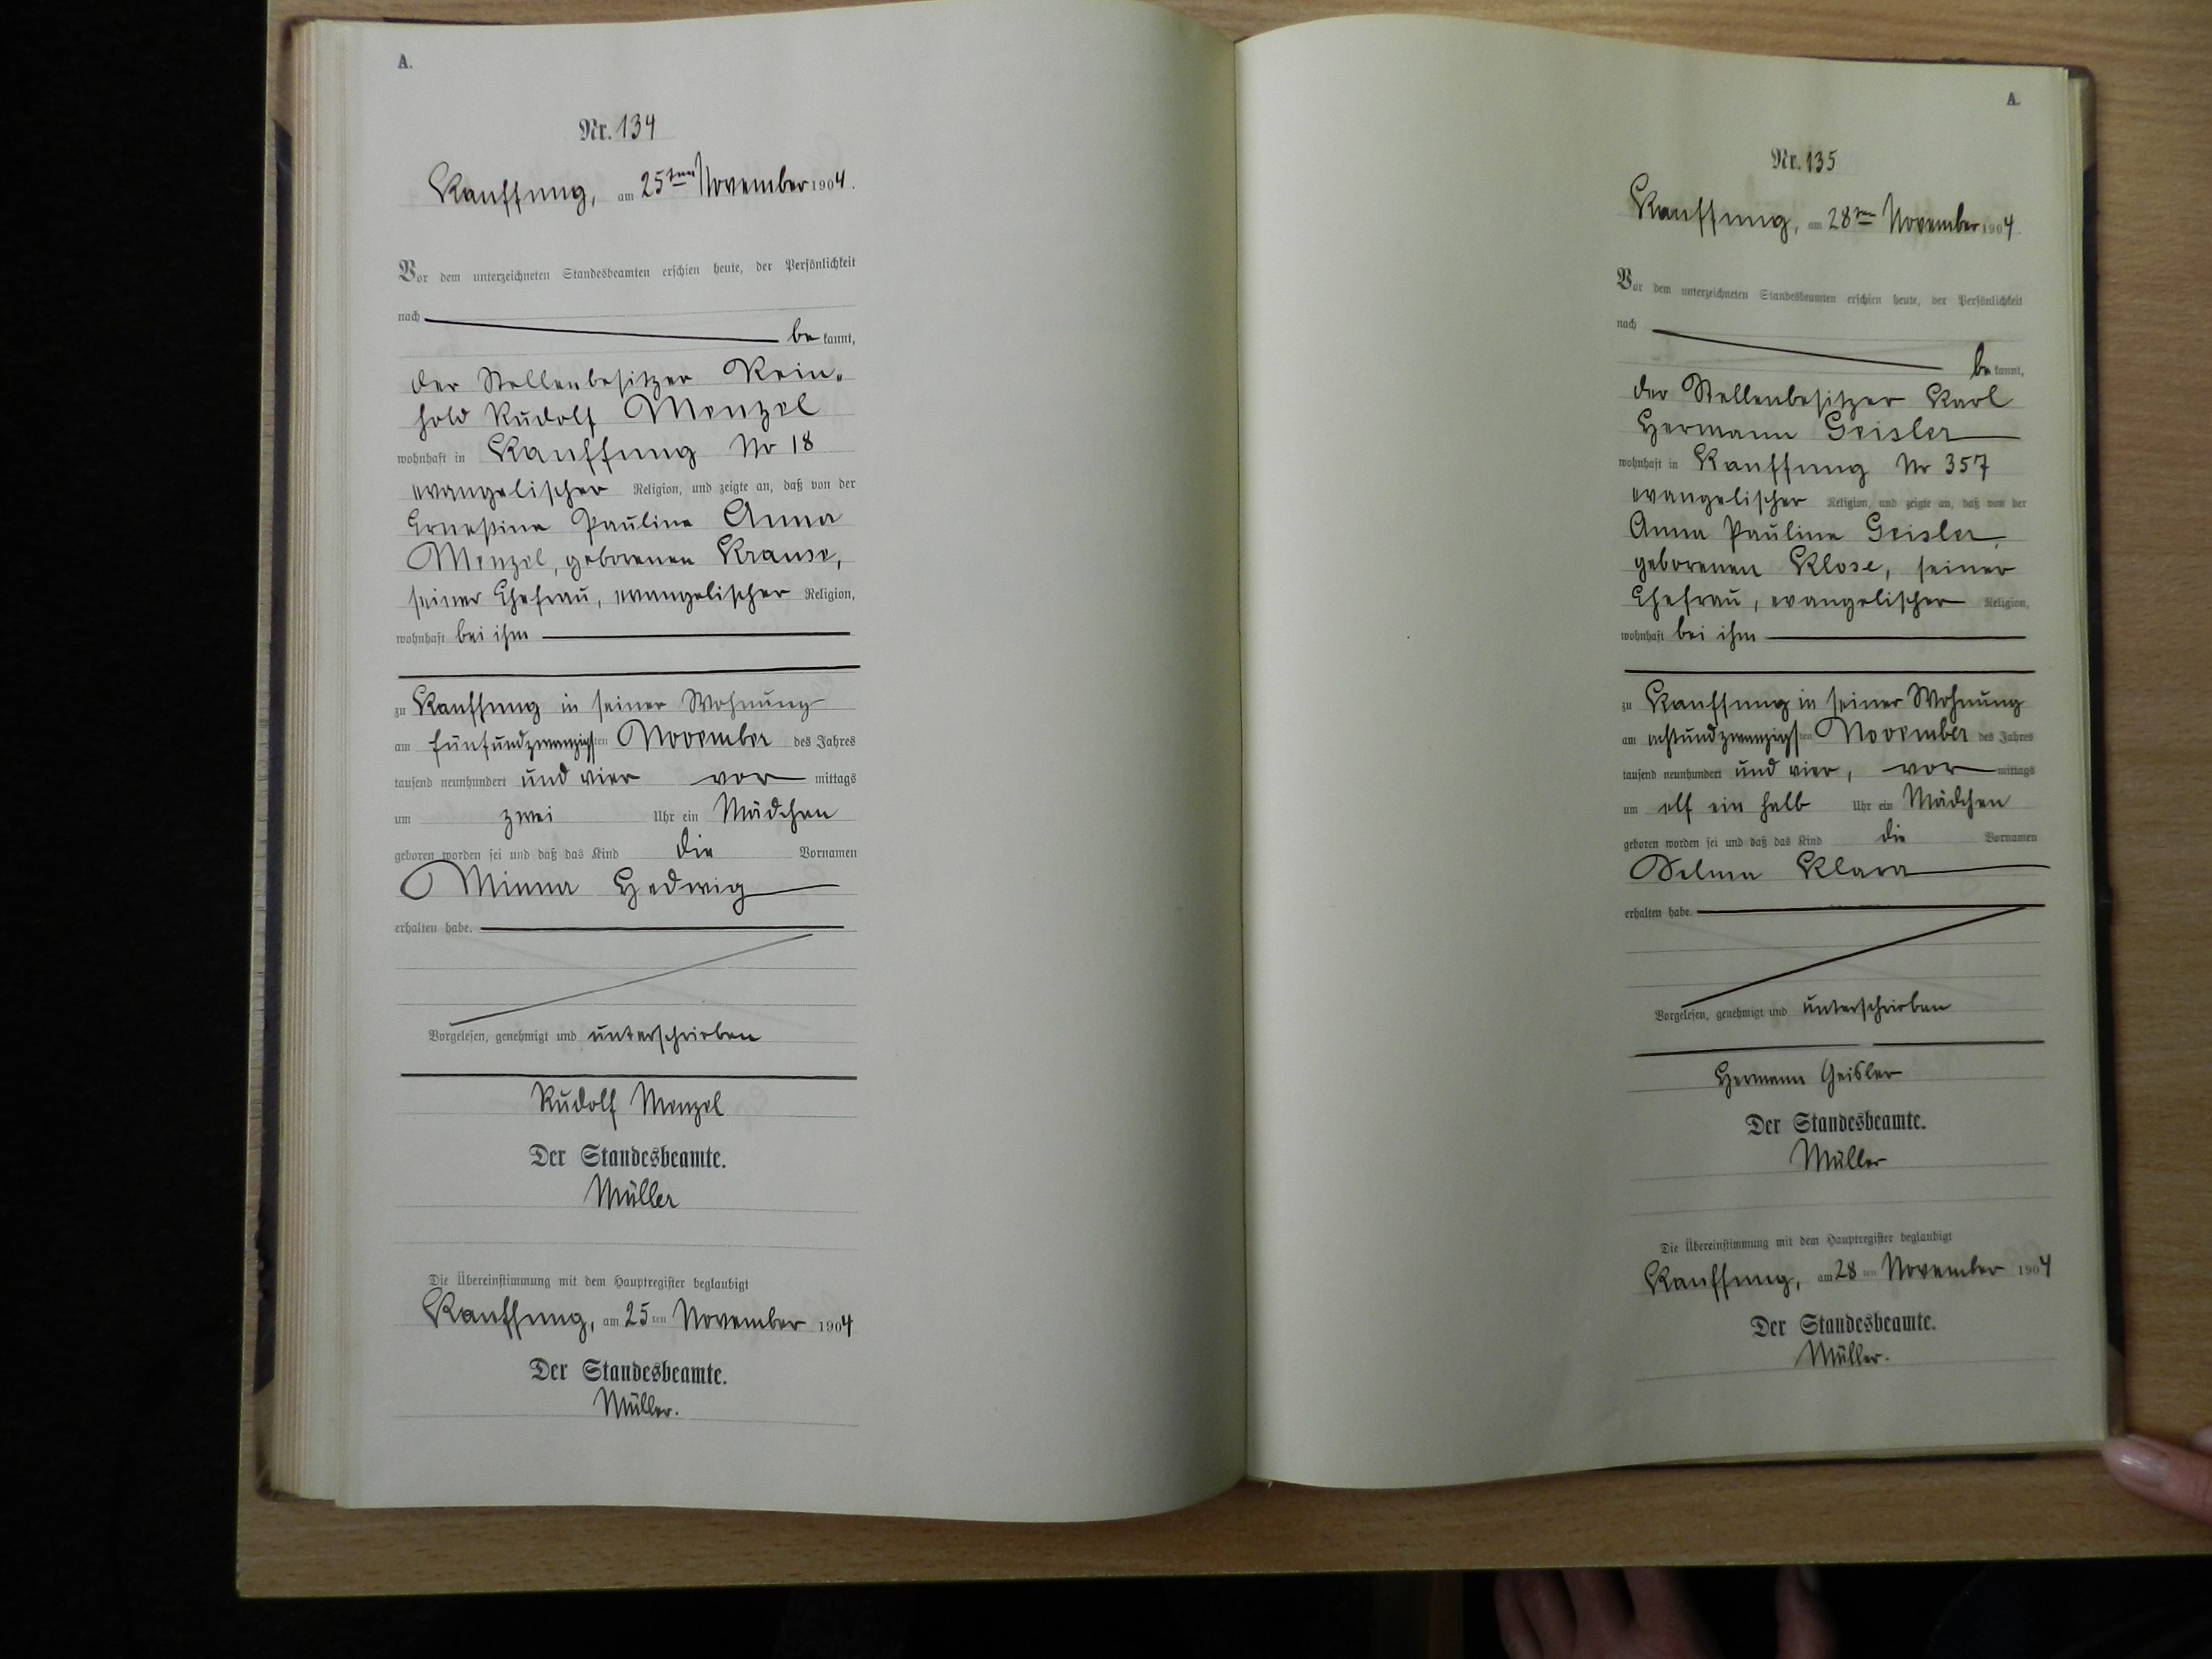 A.
Nr. 134
Kauffung, am 25ten November 1904.
Vor dem unterzeichneten Standesbeamten erschien heute, der Persönlichkeit
nach
bekannt,
der Stellenbesitzer Rein-
hold Rudolf Menzel
wohnhaft in Kauffung Nr 18
evangelischer Religion, und zeigte an, daß von der
Ernestine Pauline Anna
Menzel, geborenen Krause,
seiner Ehefrau, evangelischer Religion,
wohnhaft bei ihm
zu Kauffung in seiner Wohnung
am fünfundzwanzigsten November des Jahres
tausend neunhundert und vier vor mittags
um zwei Uhr ein Mädchen
geboren worden sei und daß das Kind die Vornamen
Minna Hedwig
erhalten habe.
Vorgelesen, genehmigt und unterschrieben
Rudolf Menzel
Der Standesbeamte.
Müller
Die Übereinstimmung mit dem Hauptregister beglaubigt
Kauffung, am 25ten November 1904
Der Standesbeamte.
Müller.
A.
Nr. 135
Kauffung, am 28ten November 1904.
Vor dem unterzeichneten Standesbeamten erschien heute, der Persönlichkeit
nach
bekannt,
der Stellenbesitzer Karl
Hermann Geisler
wohnhaft in Kauffung Nr 357
evangelischer Religion, und zeigte an, daß von der
Anna Pauline Geisler,
geborenen Klose, seiner
Ehefrau, evangelischer Religion,
wohnhaft bei ihm
zu Kauffung in seiner Wohnung
am achtundzwanzigsten November des Jahres
tausend neunhundert und vier, vor mittags
um elf ein halb Uhr ein Mädchen
geboren worden sei und daß das Kind die Vornamen
Selma Klara
erhalten habe.
Vorgelesen, genehmigt und unterschrieben
Hermann Geisler
Der Standesbeamte.
Müller
Die Übereinstimmung mit dem Hauptregister beglaubigt
Kauffung, am 28ten November 1904
Der Standesbeamte.
Müller.